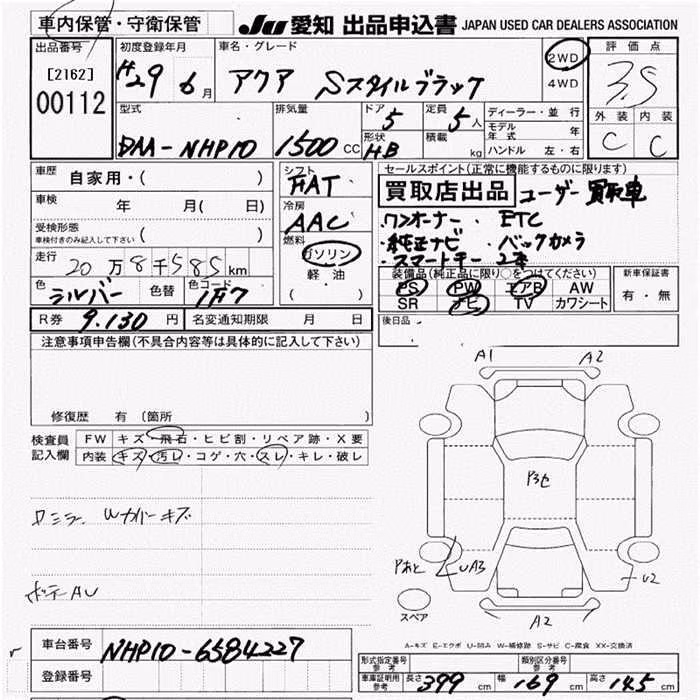 車内保管・守衛保管 JU 愛知 出品申込書 JAPAN USED CAR DEALERS ASSOCIATION
出品番号 初度登録年月 車名・グレード 評価点
[2162] H29 6月 アクア Sスタイルブラック 2WD 3.5
00112 4WD
外装 内装
型式 排気量 ドア 5 定員 5人 ディーラー・並行 C C
モデル年式 年
DAA-NHP10 1500CC 形状 HB 積載 kg ハンドル 左・右
車歴 自家用・( ) シフト FAT セールスポイント(正常に機能するものに限ります)
買取店出品 ユーザー買取車
車検 年 月( 日) 冷房 AAC ・ワンオーナー ・ETC
受検形態 車検付きのみ記入して下さい ( ) 燃料 ・純正ナビ ・バックカメラ
走行 20万8千585km ガソリン ・スマートキー 2本
軽油 装備品(純正品に限り○をつけてください) 新車保証書
色 シルバー 色替 色コード 1F7 ( ) PS PW エアB AW 有・無
SR ナビ TV カワシート
R券 9,130円 名変通知期限 月 日 後日品
注意事項申告欄(不具合内容等は具体的に記入して下さい)
A1 A2
修復歴 有(箇所 )
検査員 FW キズ・飛石・ヒビ割・リペア跡・X要
記入欄 内装 キズ・汚レ・コゲ・穴・スレ・キレ・破レ
P3セ
ミラー Wカバーキズ
Pあと UA3 U2
AU
スペア A2
A-キズ E-エクボ U-凹み W-補修跡 S-サビ C-腐食 XX-交換済
車台番号 NHP10-6584227
型式指定番号 参考 類別区分番号 参考
登録番号 車庫証明用 参考 長さ 399cm 幅 169cm 高さ 145cm